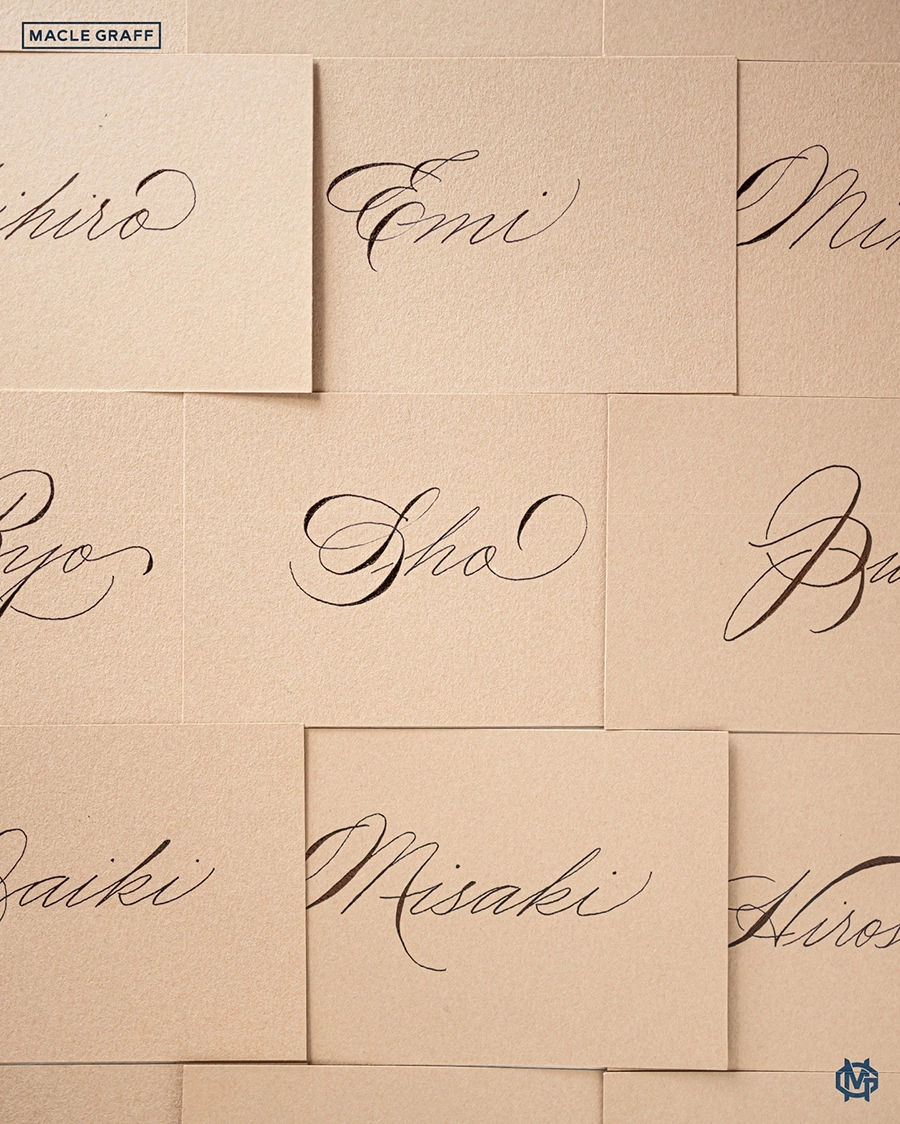 MACLE GRAFF
ihiro
Emi
Mi
Ryo
Sho
aiki
Misaki
Hiros
MG